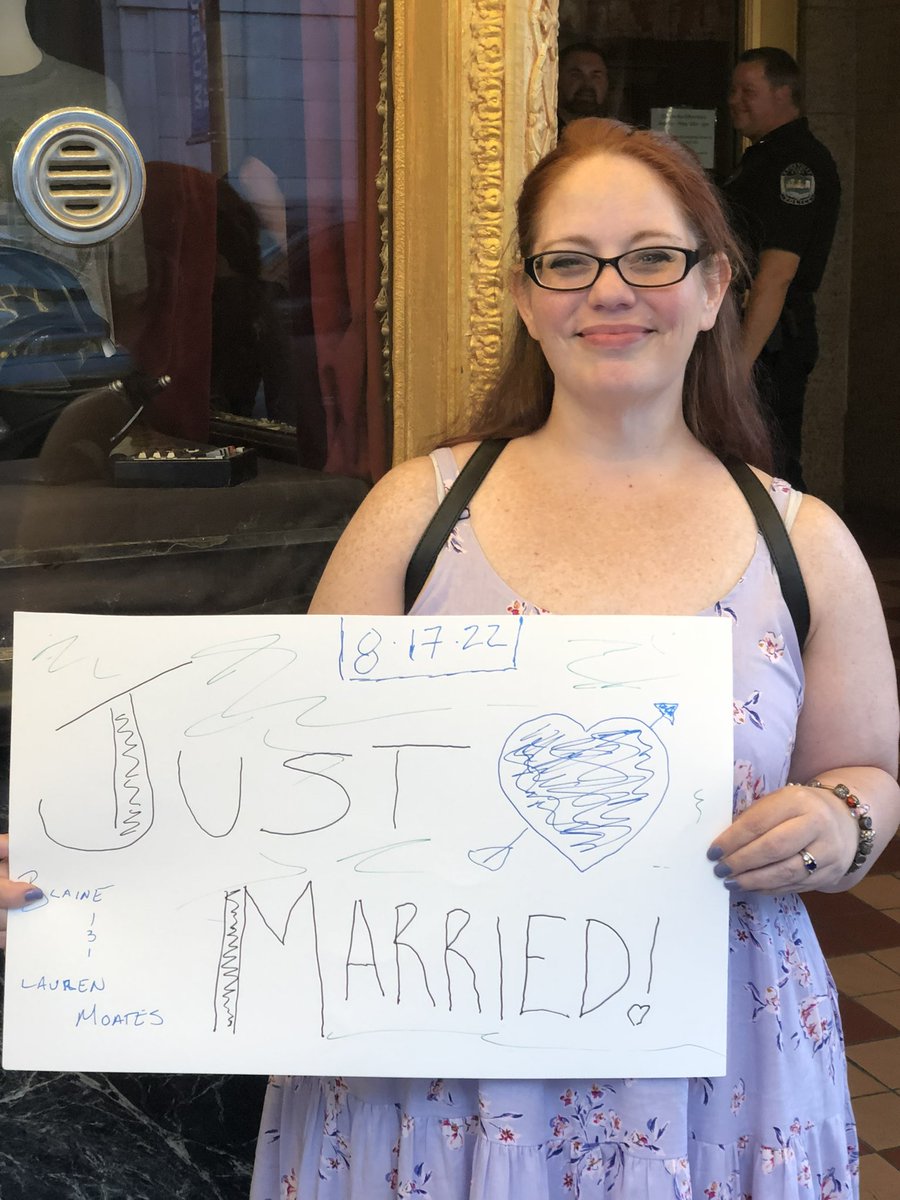 8·17·22
JUST
MARRIED!
BLAINE
1
3
1
LAUREN
MOATES
POLICE